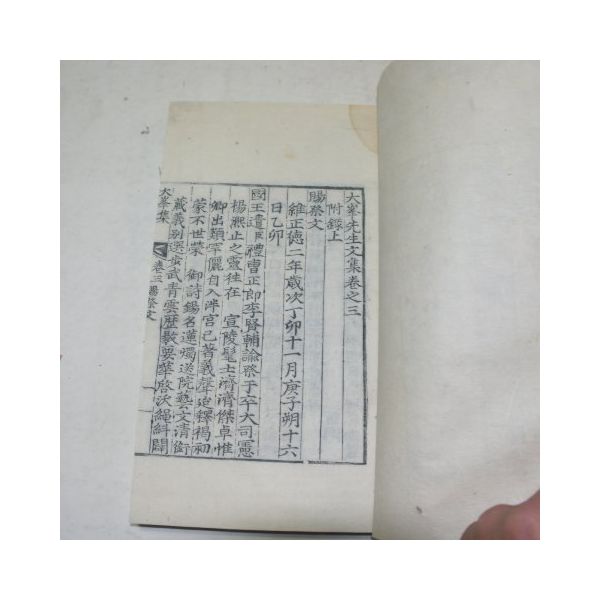 大峯先生文集卷之三
附錄上
賜祭文
維正德二年歲次丁卯十一月庚子朔十六
日乙卯
國王遣臣禮曹正郎李賢輔諭祭于卒大司憲
楊熙止之靈往在 宣陵髦士濟濟傑卓惟
卿出類罕儷自入泮宮已著義聲迨釋褐初
蒙不世榮 御詩錫名蓮燭送院藝文淸銜
薇義別選步武靑雲歷敭要華啓沃繩糾闢
大峯集
卷三賜祭文